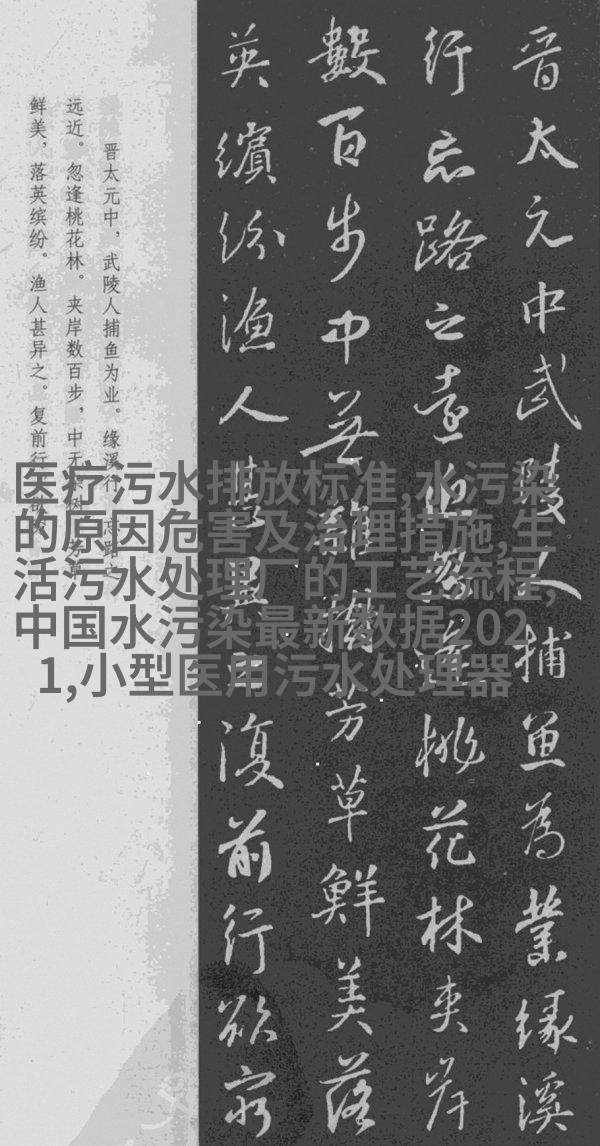 晋太元中武陵人捕鱼為業缘溪
行忘路之遠近忽逢桃花林夹岸
數百步中無雜樹芳草鮮美落
英繽纷渔人甚異之復前行欲窮
晋太元中，武陵人捕鱼为业。缘溪行，忘路之
远近。忽逢桃花林。夹岸数百步，中无杂树，芳草
鲜美，落英缤纷。渔人甚异之。复前行，欲穷
医疗污水排放标准,水污染
的原因危害及治理措施,生
活污水处理厂的工艺流程,
中国水污染最新数据202
1,小型医用污水处理器